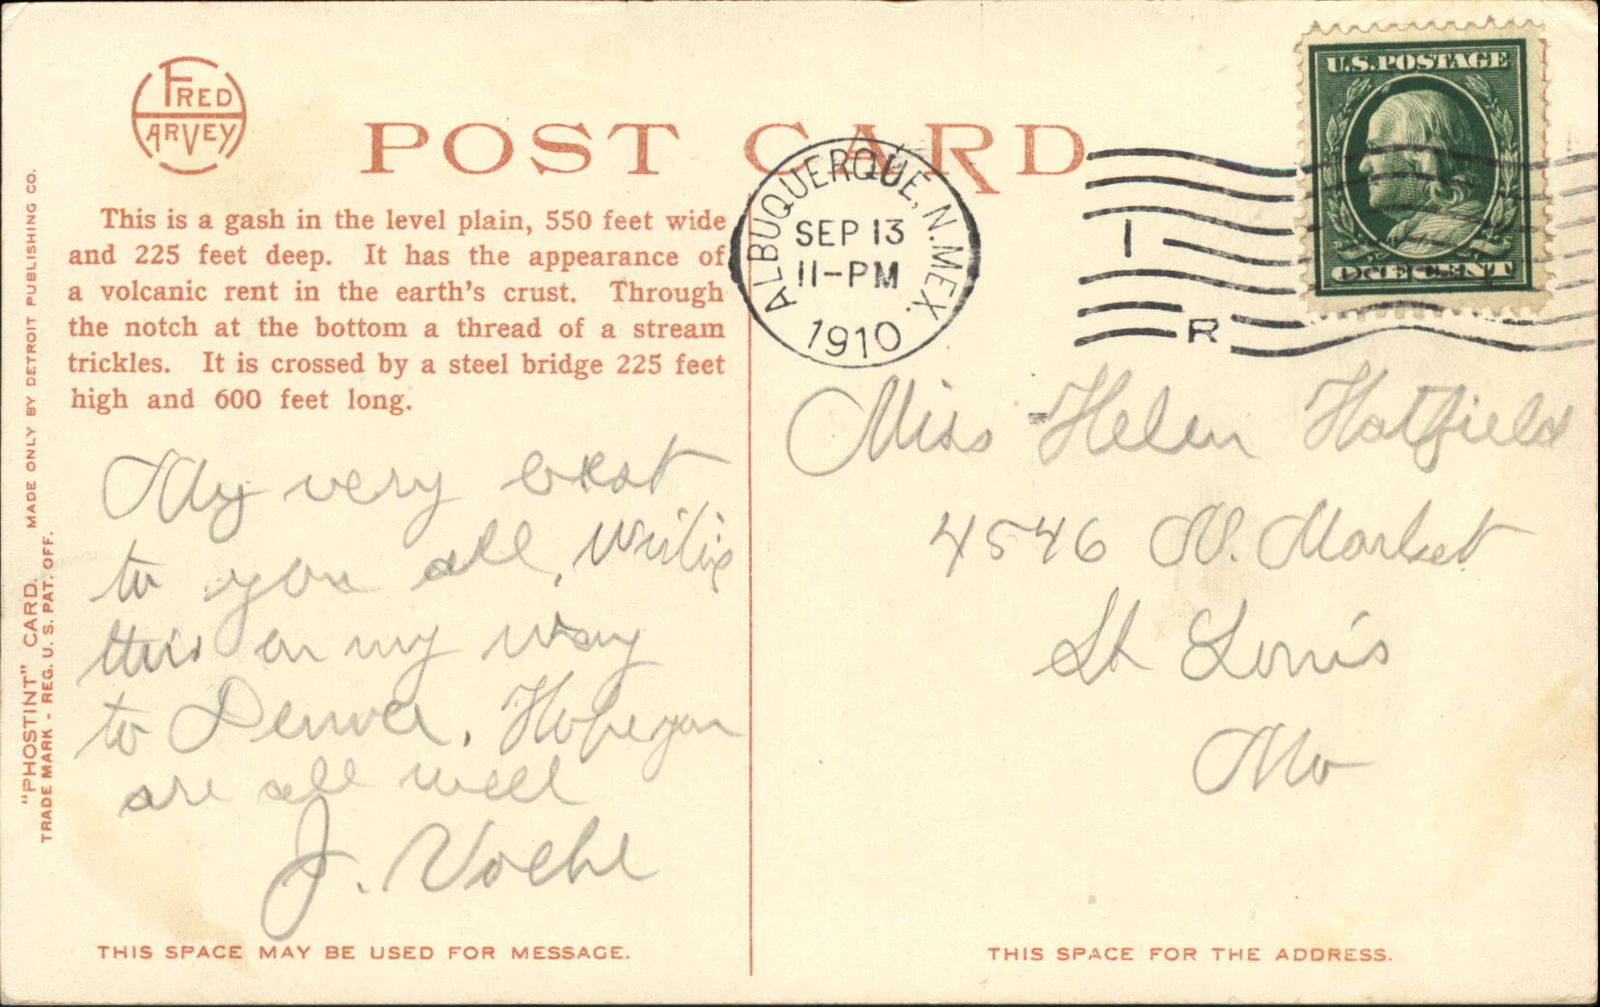 FRED HARVEY
POST CARD
U.S. POSTAGE
ONE CENT
ALBUQUERQUE, N. MEX.
SEP 13
11-PM
1910
1
R
This is a gash in the level plain, 550 feet wide
and 225 feet deep. It has the appearance of
a volcanic rent in the earth's crust. Through
the notch at the bottom a thread of a stream
trickles. It is crossed by a steel bridge 225 feet
high and 600 feet long.
My very best
to you all, writing
this on my way
to Denver. Hope you
are all well
J. Voehl
Miss Helen Hatfield
4546 N. Market
St Louis
Mo
"PHOSTINT" CARD. MADE ONLY BY DETROIT PUBLISHING CO.
TRADE MARK - REG. U. S. PAT. OFF.
THIS SPACE MAY BE USED FOR MESSAGE.
THIS SPACE FOR THE ADDRESS.